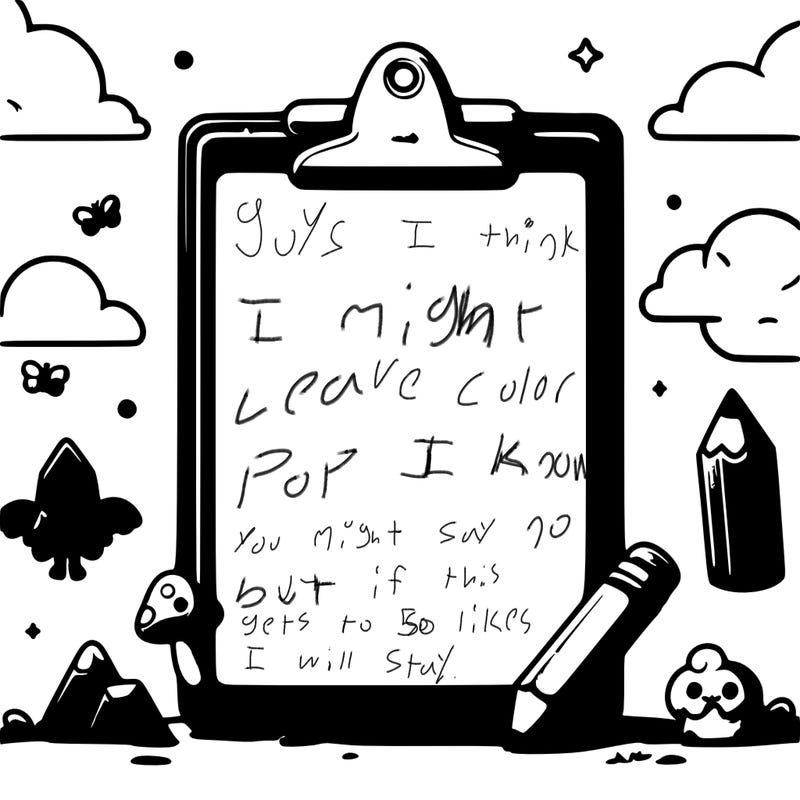 guys I think
I might
Leave color
Pop I know
You might say no
but if this
gets to 50 likes
I will stay.